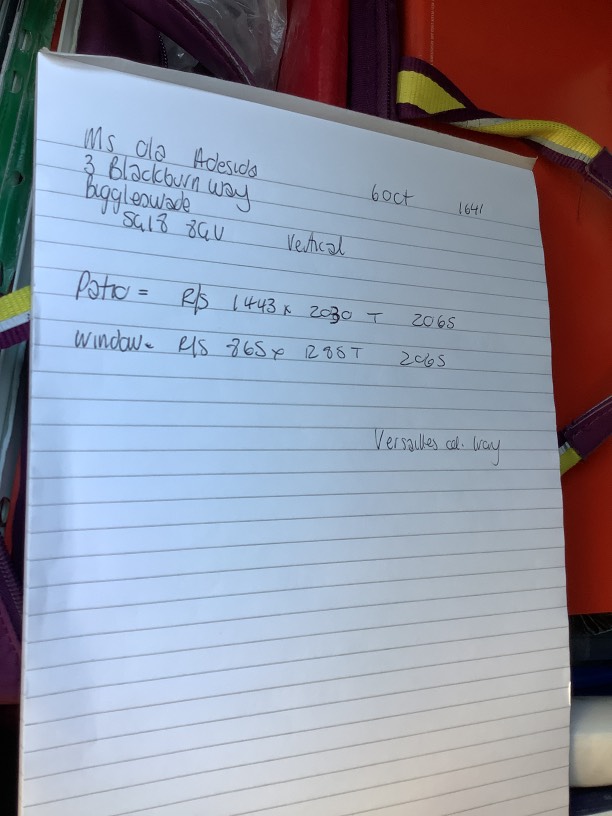 Ms Ola Adesida
3 Blackburn way
Biggleswade
SG18 8GU
6 Oct 1641
Vertical
Patio = R/S 1443 x 2030 T 2065
Window = R/S 865 x 1285 T 2065
Versailles col. Ivory